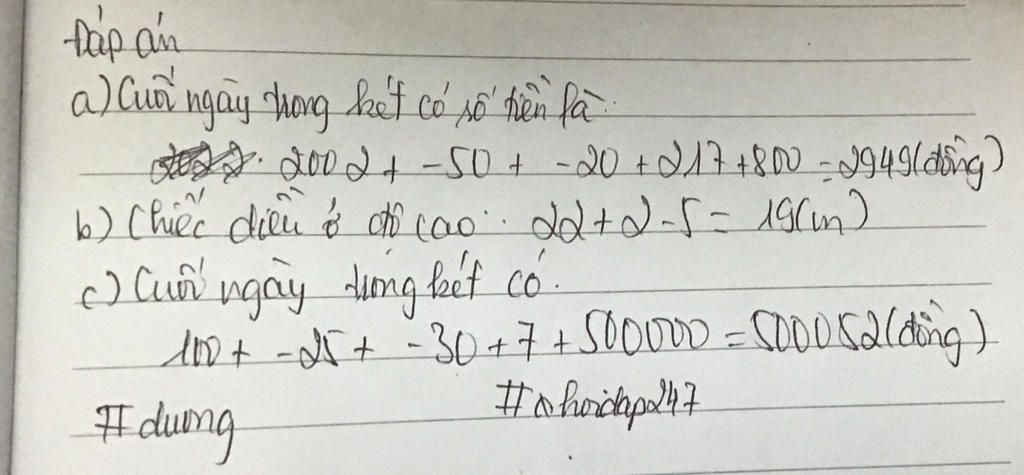 Đáp án
a) Cuối ngày trong két có số tiền là:
2002 + -50 + -20 + 217 + 800 = 2949 (đồng)
b) Chiếc diều ở độ cao: 22 + 2 - 5 = 19 (m)
c) Cuối ngày trong két có.
100 + -25 + -30 + 7 + 500000 = 500052 (đồng)
#duong #hoidap247